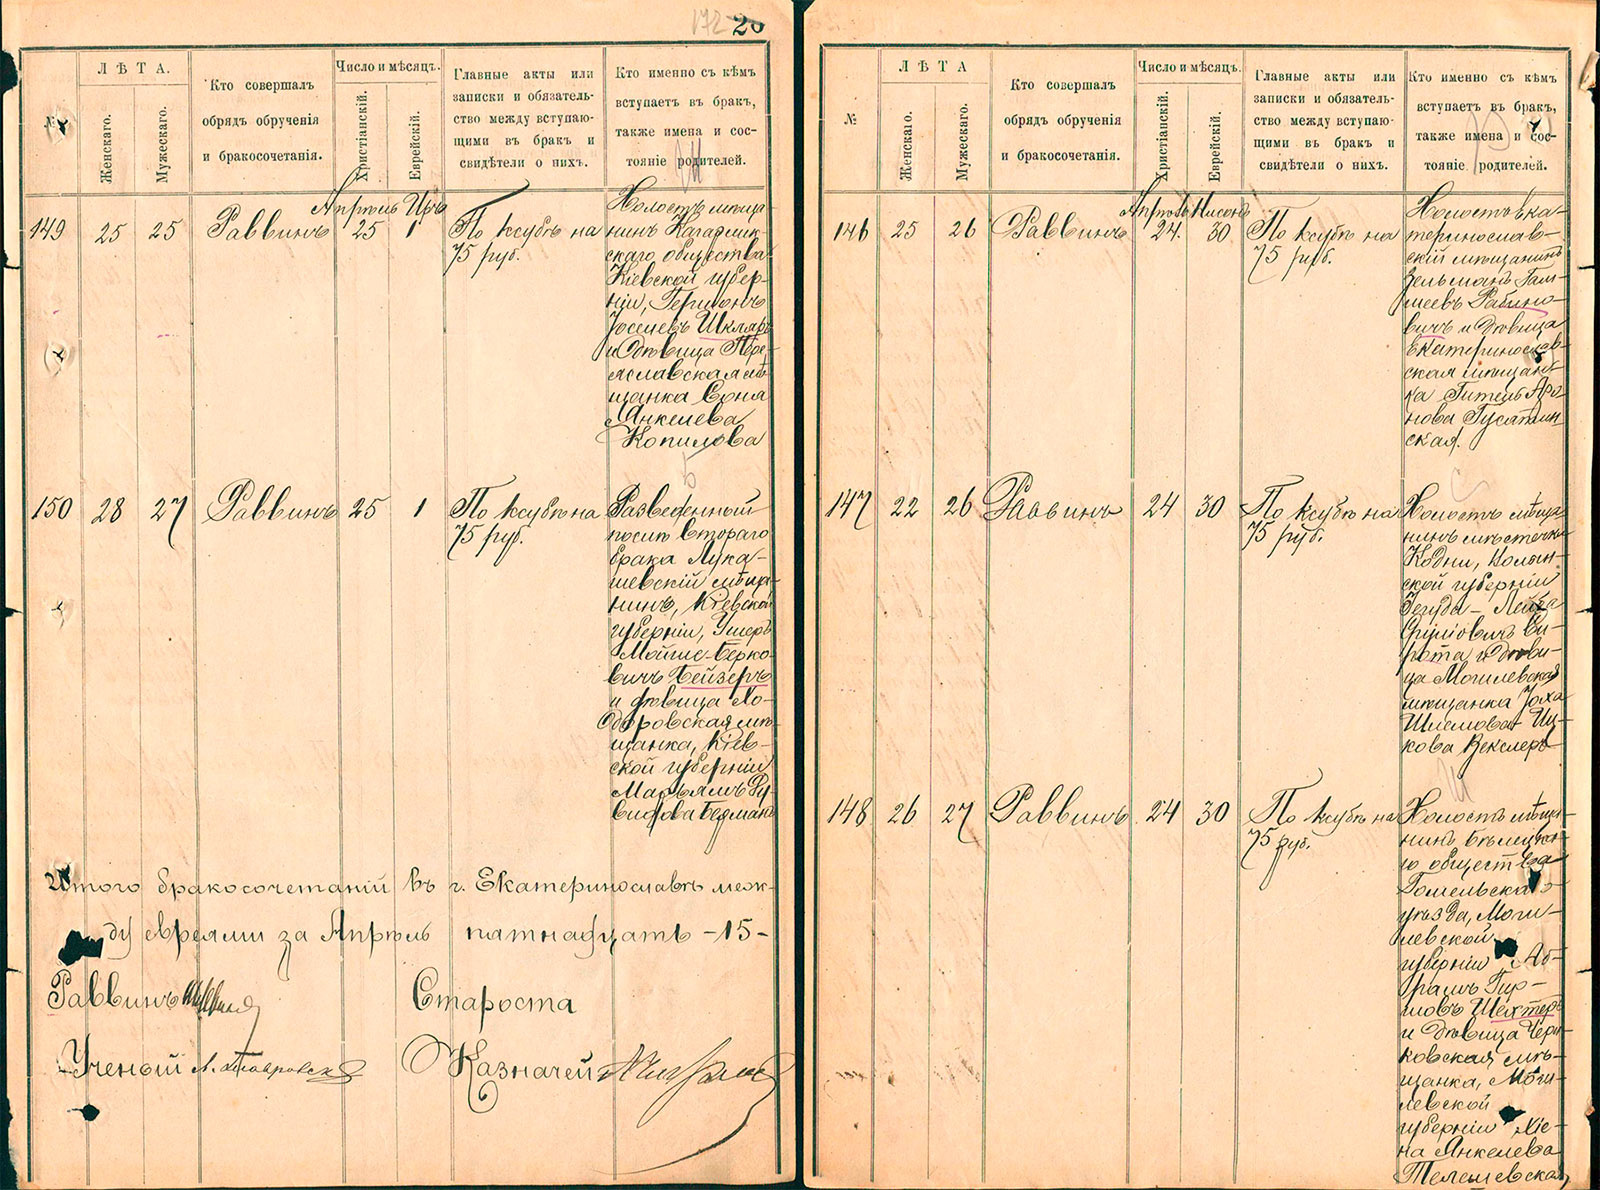 172 20
№
ЛѢТА.
Женскаго.
Мужескаго.
Кто совершалъ
обрядъ обрученія
и бракосочетанія.
Число и мѣсяцъ.
Христіанскій.
Еврейскій.
Главные акты или
записки и обязатель-
ство между вступаю-
щими въ бракъ и
свидѣтели о нихъ.
Кто именно съ кѣмъ
вступаетъ въ бракъ,
также имена и сос-
тояніе родителей.
149 25 25 Раввинъ
Апрѣль Иръ
25 1
По ксубѣ на
75 руб.
Холостъ мѣща-
нинъ Кагарлик-
скаго общества
Кіевской губер-
ніи, Гершонъ
Іосеневъ Шкляръ
и дѣвица Пере-
яславская мѣ-
щанка Соня
Янкелева
Копилова
150 28 27 Раввинъ 25 1
По ксубѣ на
75 руб.
Разведенный
послѣ втораго
брака Лука-
шевскій мѣща-
нинъ, Кіевской
губерніи, Ушеръ
Мойше-Берко-
вичъ Бейзеръ
и дѣвица Хо-
доровская мѣ-
щанка, Кіев-
ской губерніи
Марьямъ Ру-
видова
Итого бракосочетаній въ г. Екатеринославѣ меж-
ду евреями за Апрѣль пятнадцать -15-
Раввинъ
Староста
Ученый
Казначей
№
ЛѢТА
Женскаго.
Мужескаго.
Кто совершалъ
обрядъ обрученія
и бракосочетанія.
Число и мѣсяцъ.
Христіанскій.
Еврейскій.
Главные акты или
записки и обязатель-
ство между вступаю-
щими въ бракъ и
свидѣтели о нихъ.
Кто именно съ кѣмъ
вступаетъ въ бракъ,
также имена и сос-
тояніе родителей.
146 25 26 Раввинъ
Апрѣль Нисонъ
24. 30
По ксубѣ на
75 руб.
Холостъ Ека-
теринослав-
скій мѣщанинъ
Зельманъ Гам-
шеевъ Рабино-
вичъ и дѣвица
Екатеринослав-
ская мѣщан-
ка Гитель Аро-
нова Гусятин-
ская.
147 22 26 Раввинъ 24 30
По ксубѣ на
75 руб.
Холостъ мѣща-
нинъ мѣстечка
Кодни, Волын-
ской губерніи
Іегуда-Лейба
Сруліовичъ Си-
рота и дѣви-
ца Могилевская
мѣщанка Іоха
Шлемова-Иц-
кова Векслеръ
148 26 27 Раввинъ 24 30
По ксубѣ на
75 руб.
Холостъ мѣща-
нинъ Бѣлицка-
го общества
Гомельскаго
уѣзда, Моги-
левской
губерніи Аб-
рамъ Гир-
шовъ Шехтеръ
и дѣвица Чери-
ковская мѣ-
щанка, Моги-
левской
губерніи Хіе-
на Янкелева
Телешевская